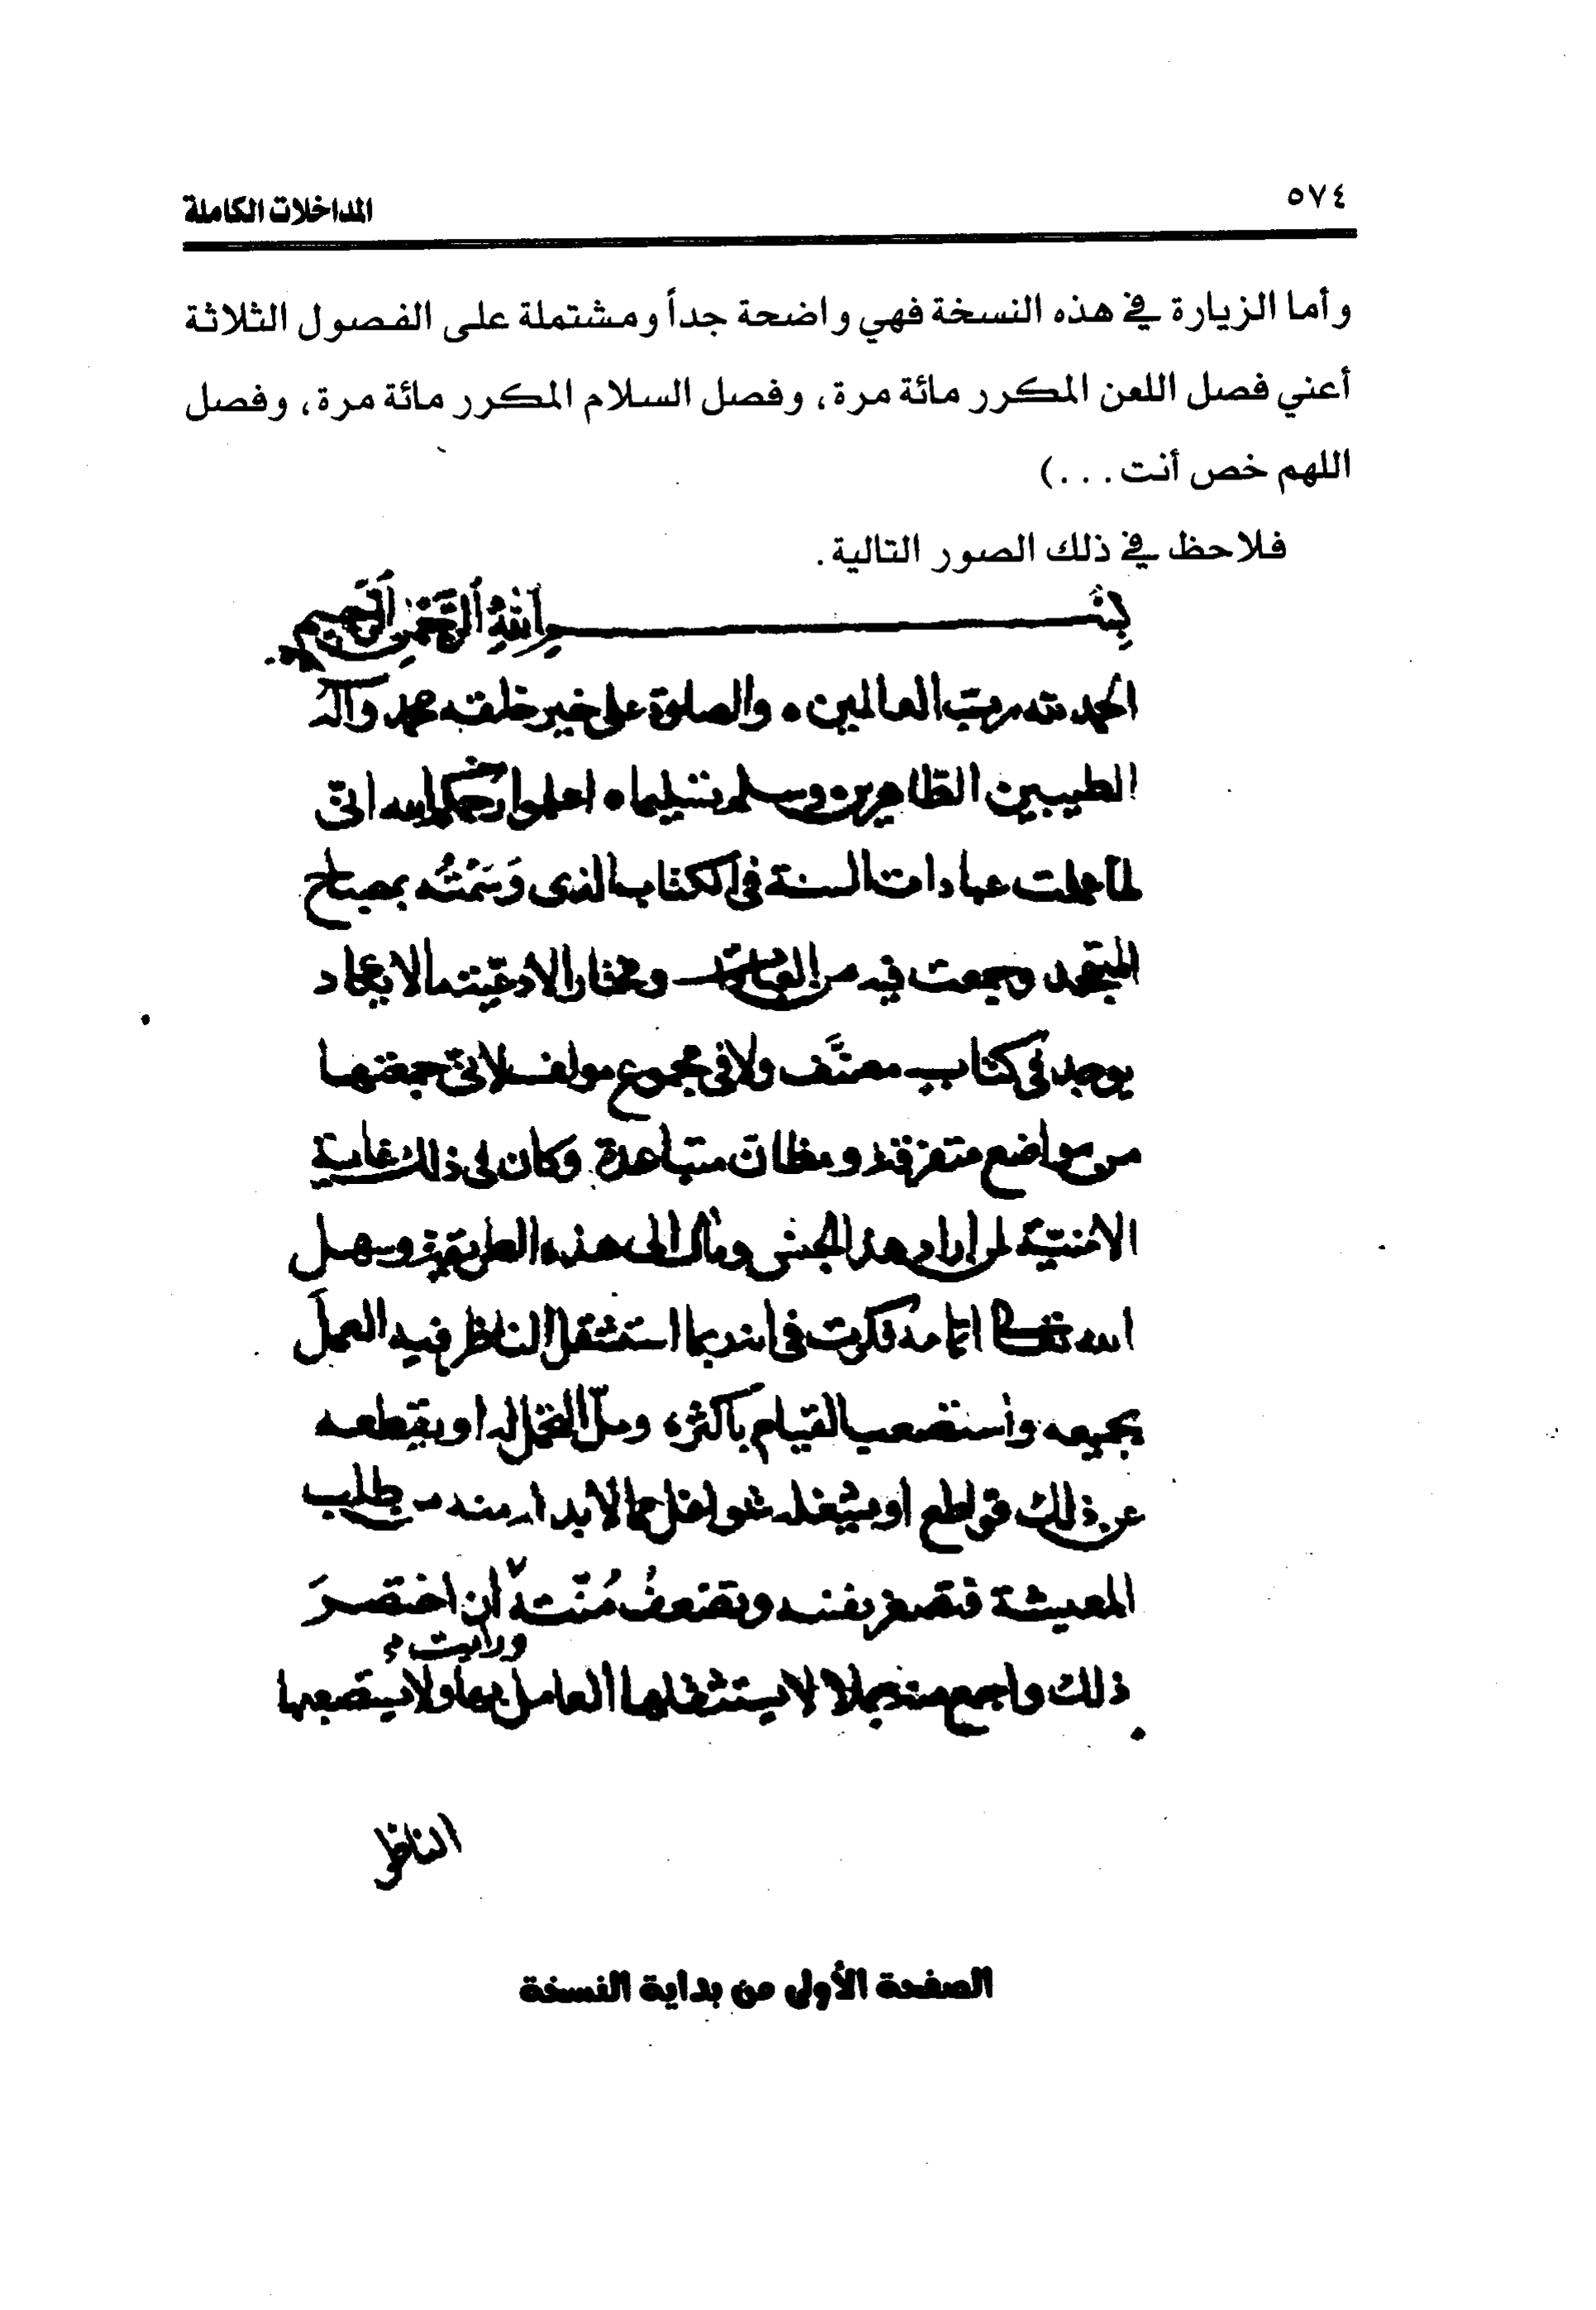 ٥٧٤
المداخلات الكاملة
وأما الزيارة في هذه النسخة فهي واضحة جداً ومشتملة على الفصول الثلاثة
أعني فصل اللعن المكرر مائة مرة، وفصل السلام المكرر مائة مرة، وفصل
اللهم خص أنت...)
فلاحظ في ذلك الصور التالية.
بِسْمِ اللهِ الرَّحْمنِ الرَّحيمِ
الحمد لله رب العالمين والصلوة على خير خلقه محمد وآله
الطيبين الطاهرين وسلم تسليما اعلموا رحمكم الله انّى
لما عملت عبادات السنة فى الكتاب الذى وَسَمْتُه بمصباح
المتهجد وجمعت فيه من العبادات ومختار الأدعيته مالا يكاد
يوجد فى كتاب مصنَّف ولا فى مجموع مولف لانّى جمعتها
من مواضع متفرقة ومظان متباعدة وكان فى ذلك غاية
الامنيّة لمن اراد هذا الجنس ومال الى هذه الطريقة وسهل
الله اتمامه فكرت فى انه ربما استثقل الناظر فيه العمل
بجميعه واستصعب القيام بأكثره وملّ او يقطعه
عن ذلك قواطع او يشغله شواغل مما لابد له منه من طلب
المعيشة فتصغر نفسه وتضعفُ مُنّته أن اختصرَ
ورايت
ذلك واجمع منه جملا لا يستثقلها العامل بها ولا يستصعبها
الناظر
الصفحة الأولى من بداية النسخة